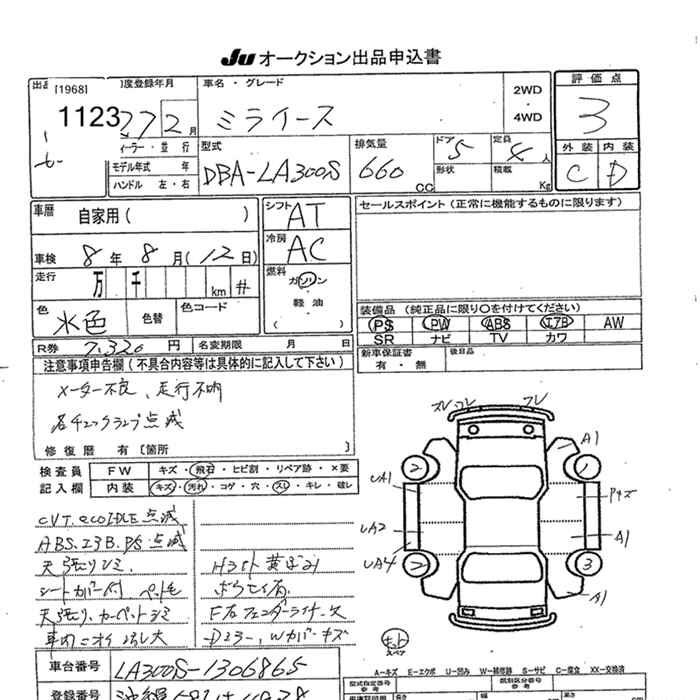 Ju オークション出品申込書
[1968]
1123
度登録年月
車名・グレード
評価点
272月
ミライース
2WD
・
4WD
3
ィーラー・並行
型式
排気量
ドア
定員
外装 内装
モデル年式 年
DBA-LA300S
660
CC
5
4人
C D
ハンドル 左・右
形状
積載
Kg
車歴 自家用( )
シフト AT
セールスポイント(正常に機能するものに限ります)
車検 8年8月(12日)
冷房 AC
走行 万 千 km #
燃料
ガソリン
・
軽油
( )
色 水色 色替 色コード
装備品(純正品に限り○を付けてください)
PS PW ABS エアB AW
SR ナビ TV カワ
R券 7,320円 名変期限 月 日
新車保証書 有・無
後日品
注意事項申告欄(不具合内容等は具体的に記入して下さい)
メーター不良、走行不明
各チェックランプ点滅
修復歴 有〔箇所 〕
検査員 FW キズ・飛石・ヒビ割・リペア跡・×要
記入欄 内装 キズ・汚れ・コゲ・穴・スレ・キレ・破レ
ズレ・フレ
フレ
A1
2
1
UA1
Pキズ
UA2
A1
UA4
2
3
A1
CVT. ecoIDLE 点滅
ABS.エアB.PS 点滅
天張りシミ
シートカバー付 ペット毛
天張り、カーペットシミ
車内ニオイ
Hライト黄ばみ
Dミラー、Wカバーキズ
スペア
車台番号 LA300S-1306865
A-キズ E-エクボ U-凹み W-補修跡 S-サビ C-腐食 XX-交換済
登録番号
型式指定番号
参考
類別区分番号
参考